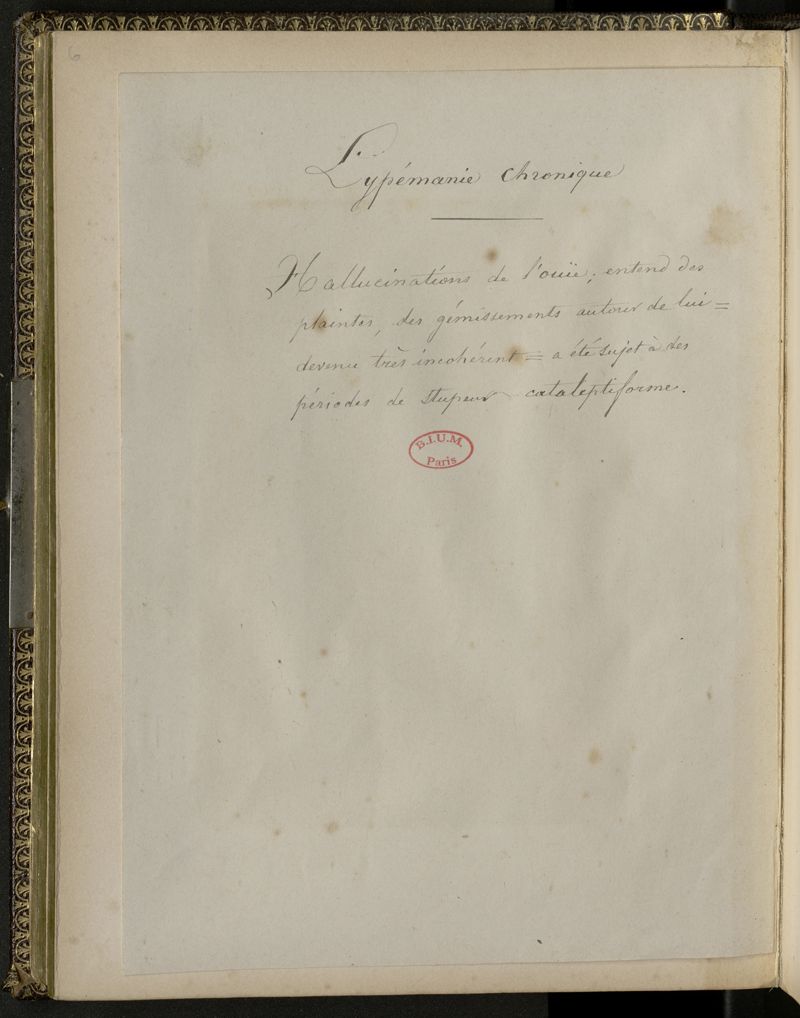 6
Lypémanie chronique
Hallucinations de l'ouïe; entend des
plaintes, des gémissements autour de lui =
devenu très incohérent = a été sujet à des
périodes de stupeur cataleptiforme.
B.I.U.M.
Paris